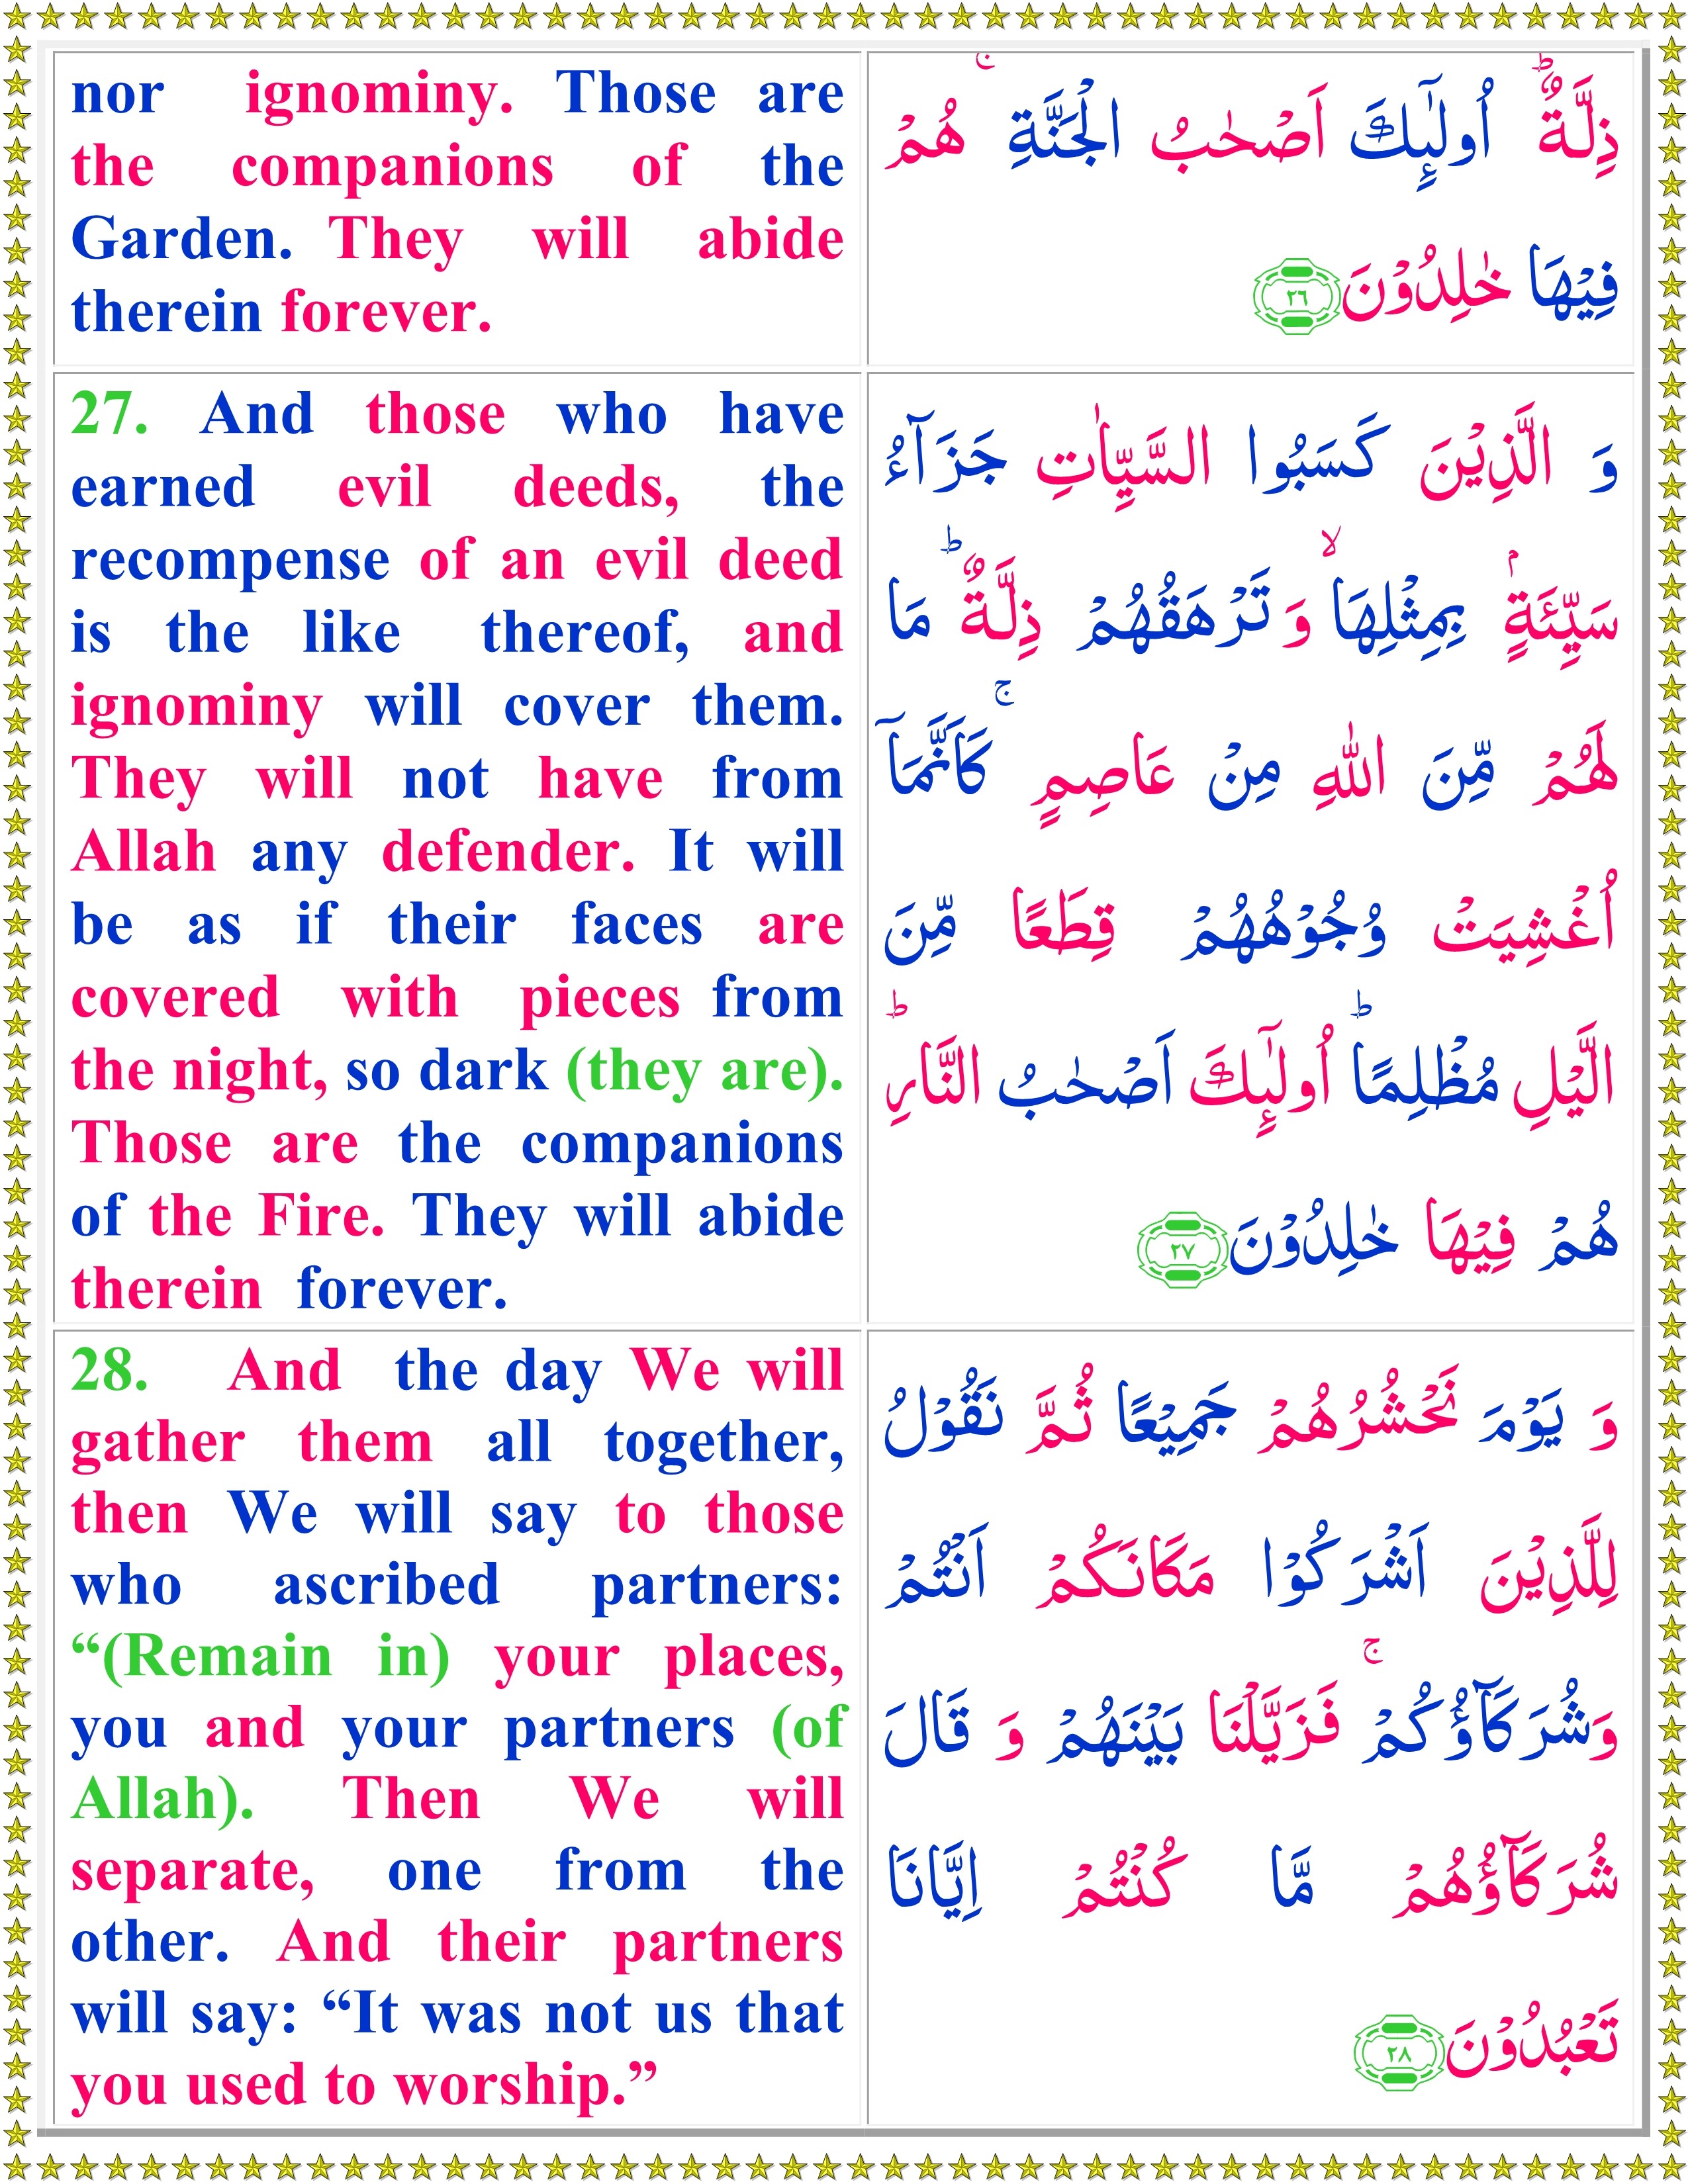 nor ignominy. Those are
the companions of the
Garden. They will abide
therein forever.
ذِلَّةٌ ؕ اُولٰٓئِكَ اَصْحٰبُ الْجَنَّةِ ۚ هُمْ
فِيْهَا خٰلِدُوْنَ ﴿۲۶﴾
27. And those who have
earned evil deeds, the
recompense of an evil deed
is the like thereof, and
ignominy will cover them.
They will not have from
Allah any defender. It will
be as if their faces are
covered with pieces from
the night, so dark (they are).
Those are the companions
of the Fire. They will abide
therein forever.
وَ الَّذِيْنَ كَسَبُوا السَّيِّاٰتِ جَزَآءُ
سَيِّئَةٍۭ بِمِثْلِهَا ۙ وَ تَرْهَقُهُمْ ذِلَّةٌ ؕ مَا
لَهُمْ مِّنَ اللّٰهِ مِنْ عَاصِمٍ ۚ كَاَنَّمَاۤ
اُغْشِيَتْ وُجُوْهُهُمْ قِطَعًا مِّنَ
الَّيْلِ مُظْلِمًا ؕ اُولٰٓئِكَ اَصْحٰبُ النَّارِ ؕ
هُمْ فِيْهَا خٰلِدُوْنَ ﴿۲۷﴾
28. And the day We will
gather them all together,
then We will say to those
who ascribed partners:
“(Remain in) your places,
you and your partners (of
Allah). Then We will
separate, one from the
other. And their partners
will say: “It was not us that
you used to worship.”
وَ يَوْمَ نَحْشُرُهُمْ جَمِيْعًا ثُمَّ نَقُوْلُ
لِلَّذِيْنَ اَشْرَكُوْا مَكَانَكُمْ اَنْتُمْ
وَشُرَكَآؤُكُمْ ۚ فَزَيَّلْنَا بَيْنَهُمْ وَ قَالَ
شُرَكَآؤُهُمْ مَّا كُنْتُمْ اِيَّانَا
تَعْبُدُوْنَ ﴿۲۸﴾